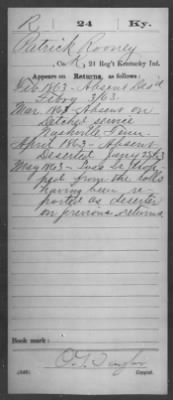 R | 24 | Ky.
Patrick Rooney
Co. K, 21 Reg't Kentucky Inf.
Appears on Returns, as follows:
Feb 1863 - Absent Des'd
3/63.
Mar 1863 - Absent on
Detached service
Nashville Tenn.
April 1863 - Absent
Deserted
May 1863 - Loss
from the rolls
having been re-
ported as deserter
on previous returns
Book mark:
Copyist.